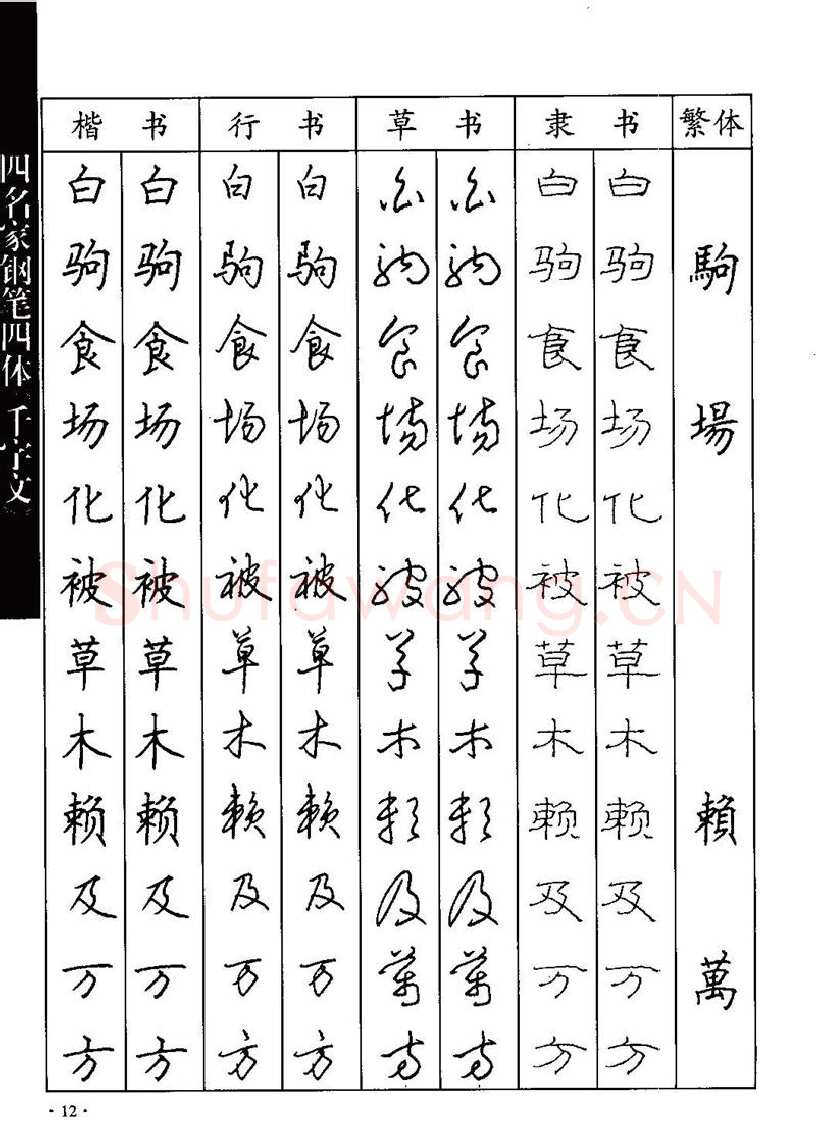 四名家钢笔四体 千字文
楷书 行书 草书 隶书 繁体
白 白 白 白 白 白 白 白
驹 驹 驹 驹 驹 驹 驹 驹 駒
食 食 食 食 食 食 食 食
场 场 场 场 场 场 场 场 場
化 化 化 化 化 化 化 化
被 被 被 被 被 被 被 被
草 草 草 草 草 草 草 草
木 木 木 木 木 木 木 木
赖 赖 赖 赖 赖 赖 赖 赖 賴
及 及 及 及 及 及 及 及
万 万 万 万 萬 萬 万 万 萬
方 方 方 方 方 方 方 方
Shufawang.CN
·12·